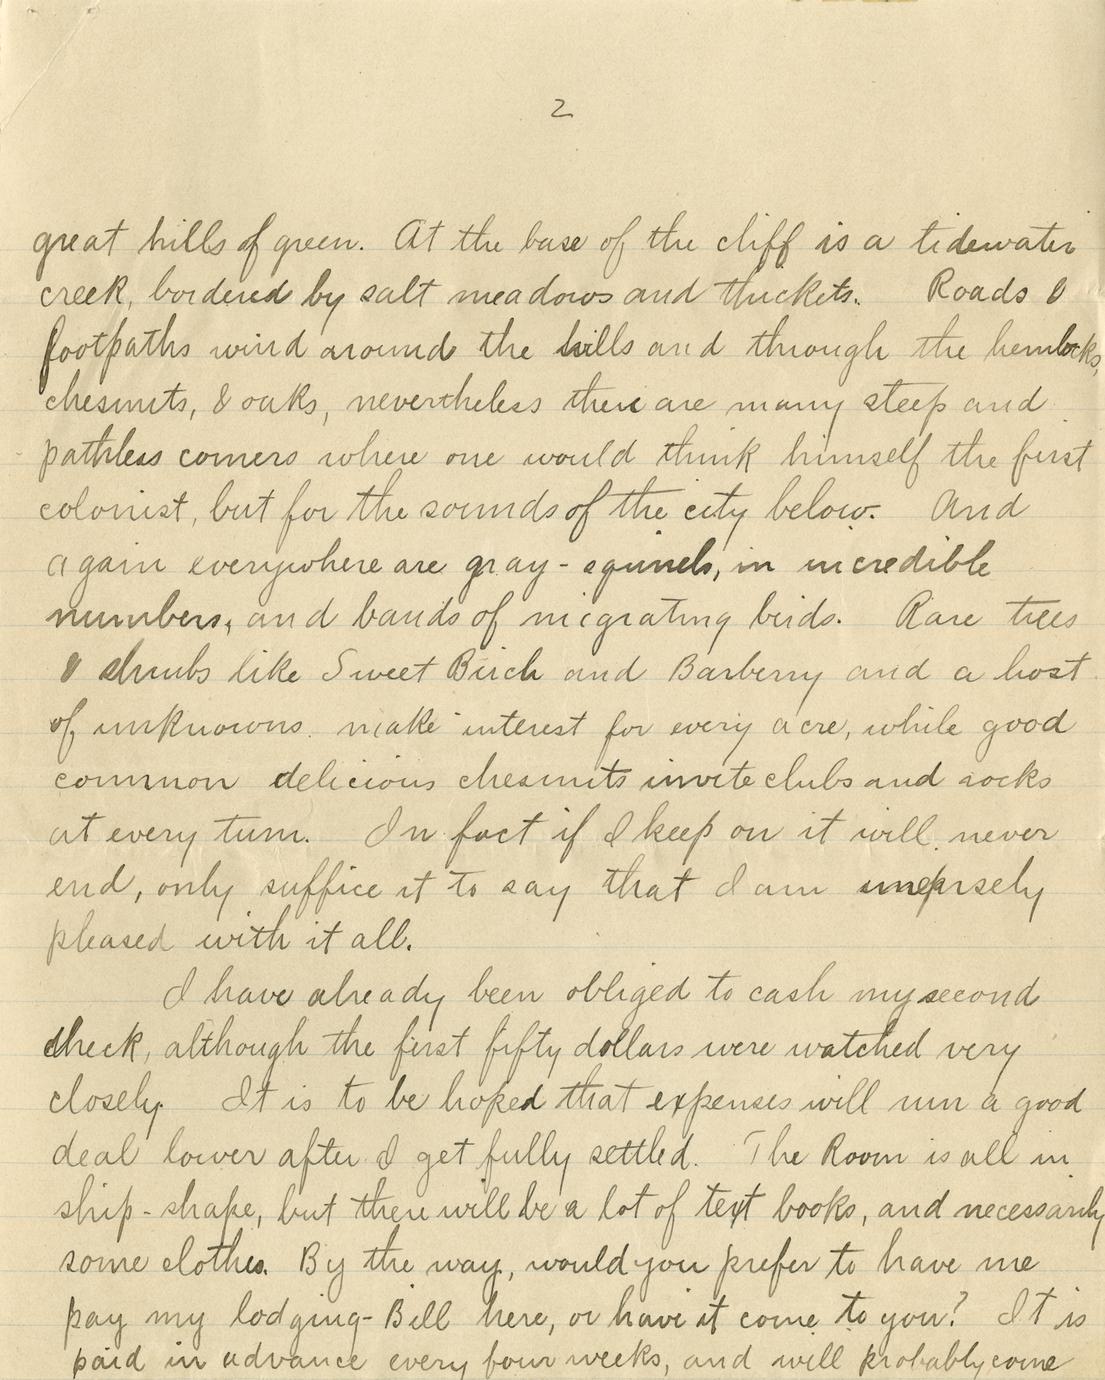 2
great hills of green. At the base of the cliff is a tidewater
creek, bordered by salt meadows and thickets. Roads &
footpaths wind around the hills and through the hemlocks,
chesnuts, & oaks, nevertheless there are many steep and
pathless corners where one would think himself the first
colonist, but for the sounds of the city below. And
again everywhere are gray-squirrels, in incredible
numbers, and bands of migrating birds. Rare trees
& shrubs like Sweet Birch and Barberry and a host
of unknowns make interest for every acre, while good
common delicious chesnuts invite clubs and rocks
at every turn. In fact if I keep on it will never
end, only suffice it to say that I am
pleased with it all.
I have already been obliged to cash my second
check, although the first fifty dollars were watched very
closely. It is to be hoped that expenses will run a good
deal lower after I get fully settled. The Room is all in
ship-shape, but there will be a lot of text books, and necessarily
some clothes. By the way, would you prefer to have me
pay my lodging-Bill here, or have it come to you? It is
paid in advance every four weeks, and will probably come